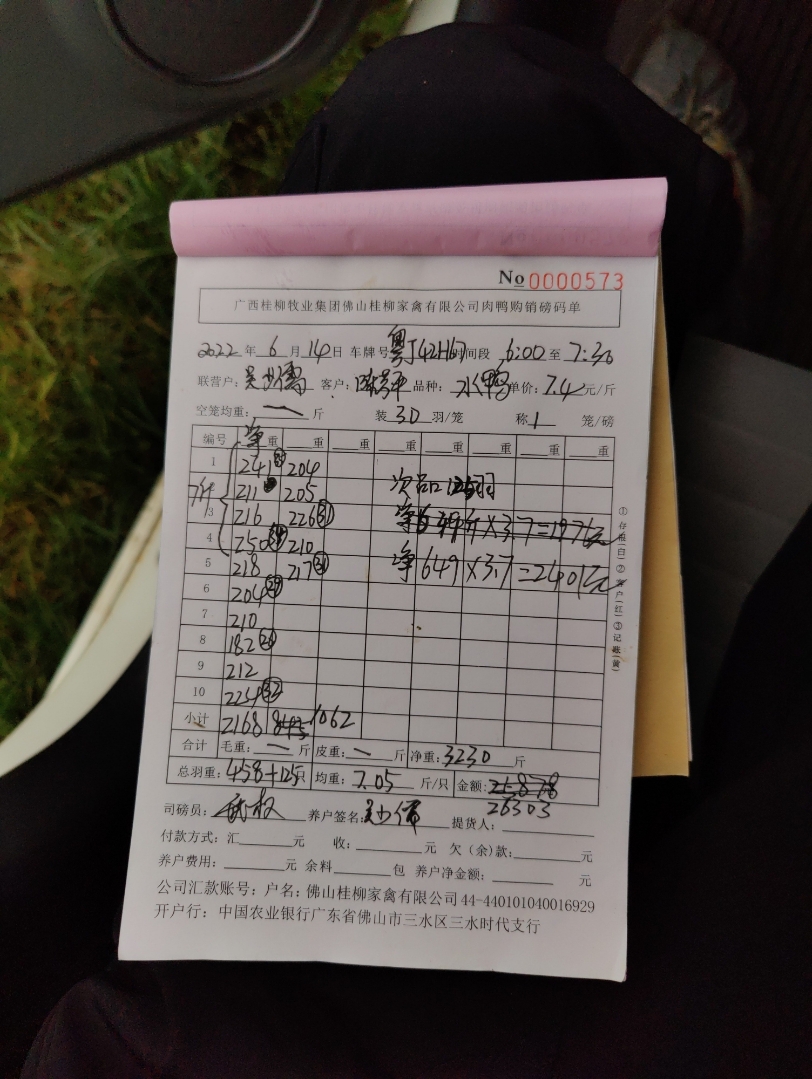 No 0000573
广西桂柳牧业集团佛山桂柳家禽有限公司肉鸭购销磅码单
2022年 6 月 14 日 车牌号 粤J42H67 时间段 6:00 至 7:30
联营户: 客户: 品种: 水鸭 单价: 7.4 元/斤
空笼均重: 一 斤 装 30 羽/笼 称 1 笼/磅
编号 净重 重 重 重 重 重 重 重
1 241 204
2 211 205 次品 125羽
3 216 226 31 ×3.7=1976元
4 250 210
5 218 217 31 净649×3.7=2401元
6 204 29
7 210
8 182
9 212
10 224 32
小计 2168 1062
合计 毛重: 一 斤 皮重: 一 斤 净重: 3230 斤
总羽重: 458+125只 均重: 7.05 斤/只 金额: 21878
26303
司磅员: 养户签名: 提货人:
付款方式: 汇 元 收: 元 欠(余)款: 元
养户费用: 元 余料 包 养户净金额: 元
公司汇款账号: 户名: 佛山桂柳家禽有限公司 44-440101040016929
开户行: 中国农业银行广东省佛山市三水区三水时代支行
①存根(白)②客户(红)③记账(黄)